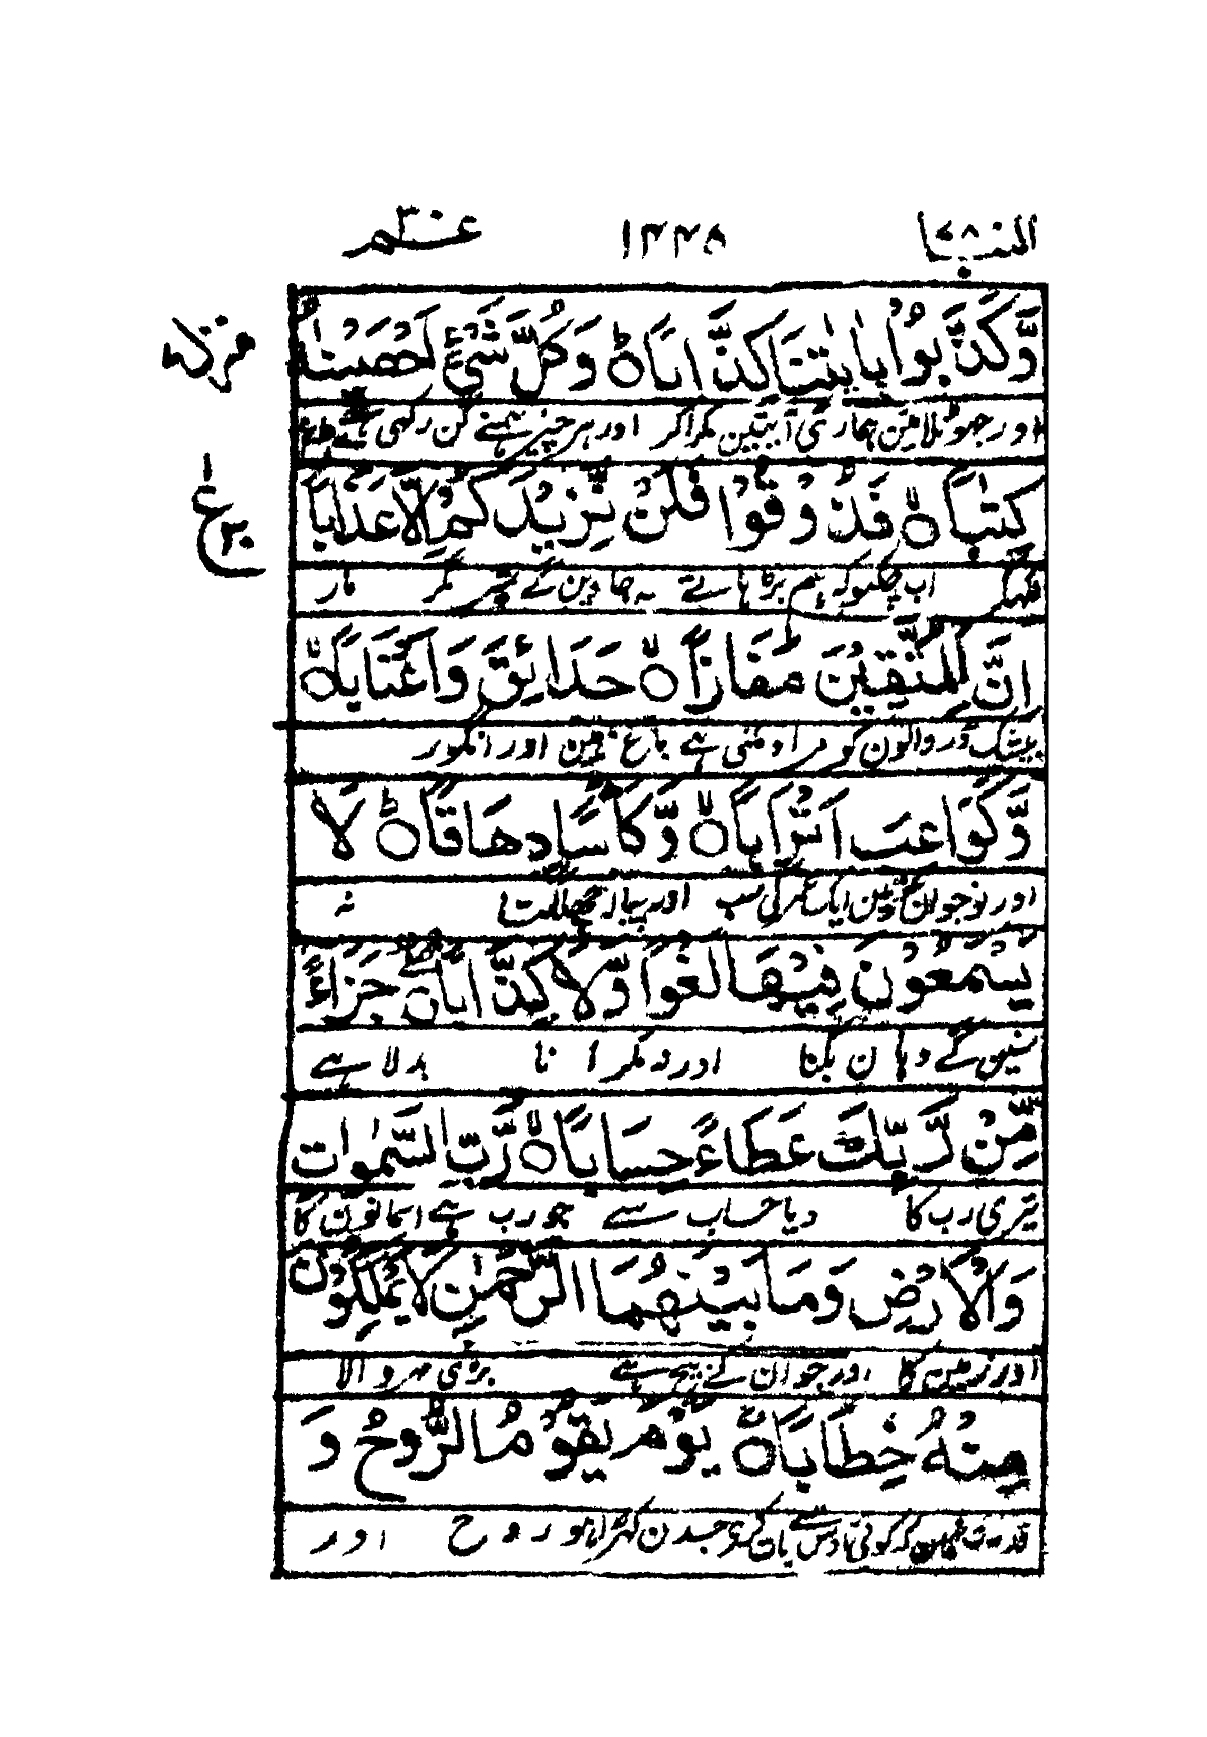 النبا ٧٨ ١٢٤٨ عم ٣٠
وَّكَذَّبُوْا بِاٰيٰتِنَا كِذَّابًا ۝ وَكُلَّ شَيْءٍ اَحْصَيْنٰهُ
اور جھوٹلائین ہماری آیتین مکراکر اور ہر چیز ہمنے گن رکھی ہے
كِتٰبًا ۝ فَذُوْقُوْا فَلَنْ نَّزِيْدَكُمْ اِلَّا عَذَابًا
اب چکھو کہ ہم بڑہاتے نہ جاوین گے تمپر مگر مار
اِنَّ لِلْمُتَّقِيْنَ مَفَازًا ۝ حَدَآئِقَ وَاَعْنَابًا ۝
بیشک ڈر والون کو مراد ملنی ہے باغ ہین اور انگور
وَّكَوَاعِبَ اَتْرَابًا ۝ وَّكَاْسًا دِهَاقًا ۝ لَا
اور نوجوان عورتین ایک عمر کی سب اور پیالہ چھلکتا نہ
يَسْمَعُوْنَ فِيْهَا لَغْوًا وَّلَا كِذَّابًا ۝ جَزَآءً
سنین گے وہان بکنا اور نہ مکرانا بدلا ہے
مِّنْ رَّبِّكَ عَطَآءً حِسَابًا ۝ رَّبِّ السَّمٰوٰتِ
تیری رب کا دیا حساب سے جو رب ہے اسمانون کا
وَالْاَرْضِ وَمَا بَيْنَهُمَا الرَّحْمٰنِ لَا يَمْلِكُوْنَ
اور زمین کا اور جو ان کے بیچ ہے بڑی مہر والا
مِنْهُ خِطَابًا ۝ يَوْمَ يَقُوْمُ الرُّوْحُ وَ
قدرت نہین کہ کوئی اوس سے بات کرے جسدن کھڑا ہو روح اور